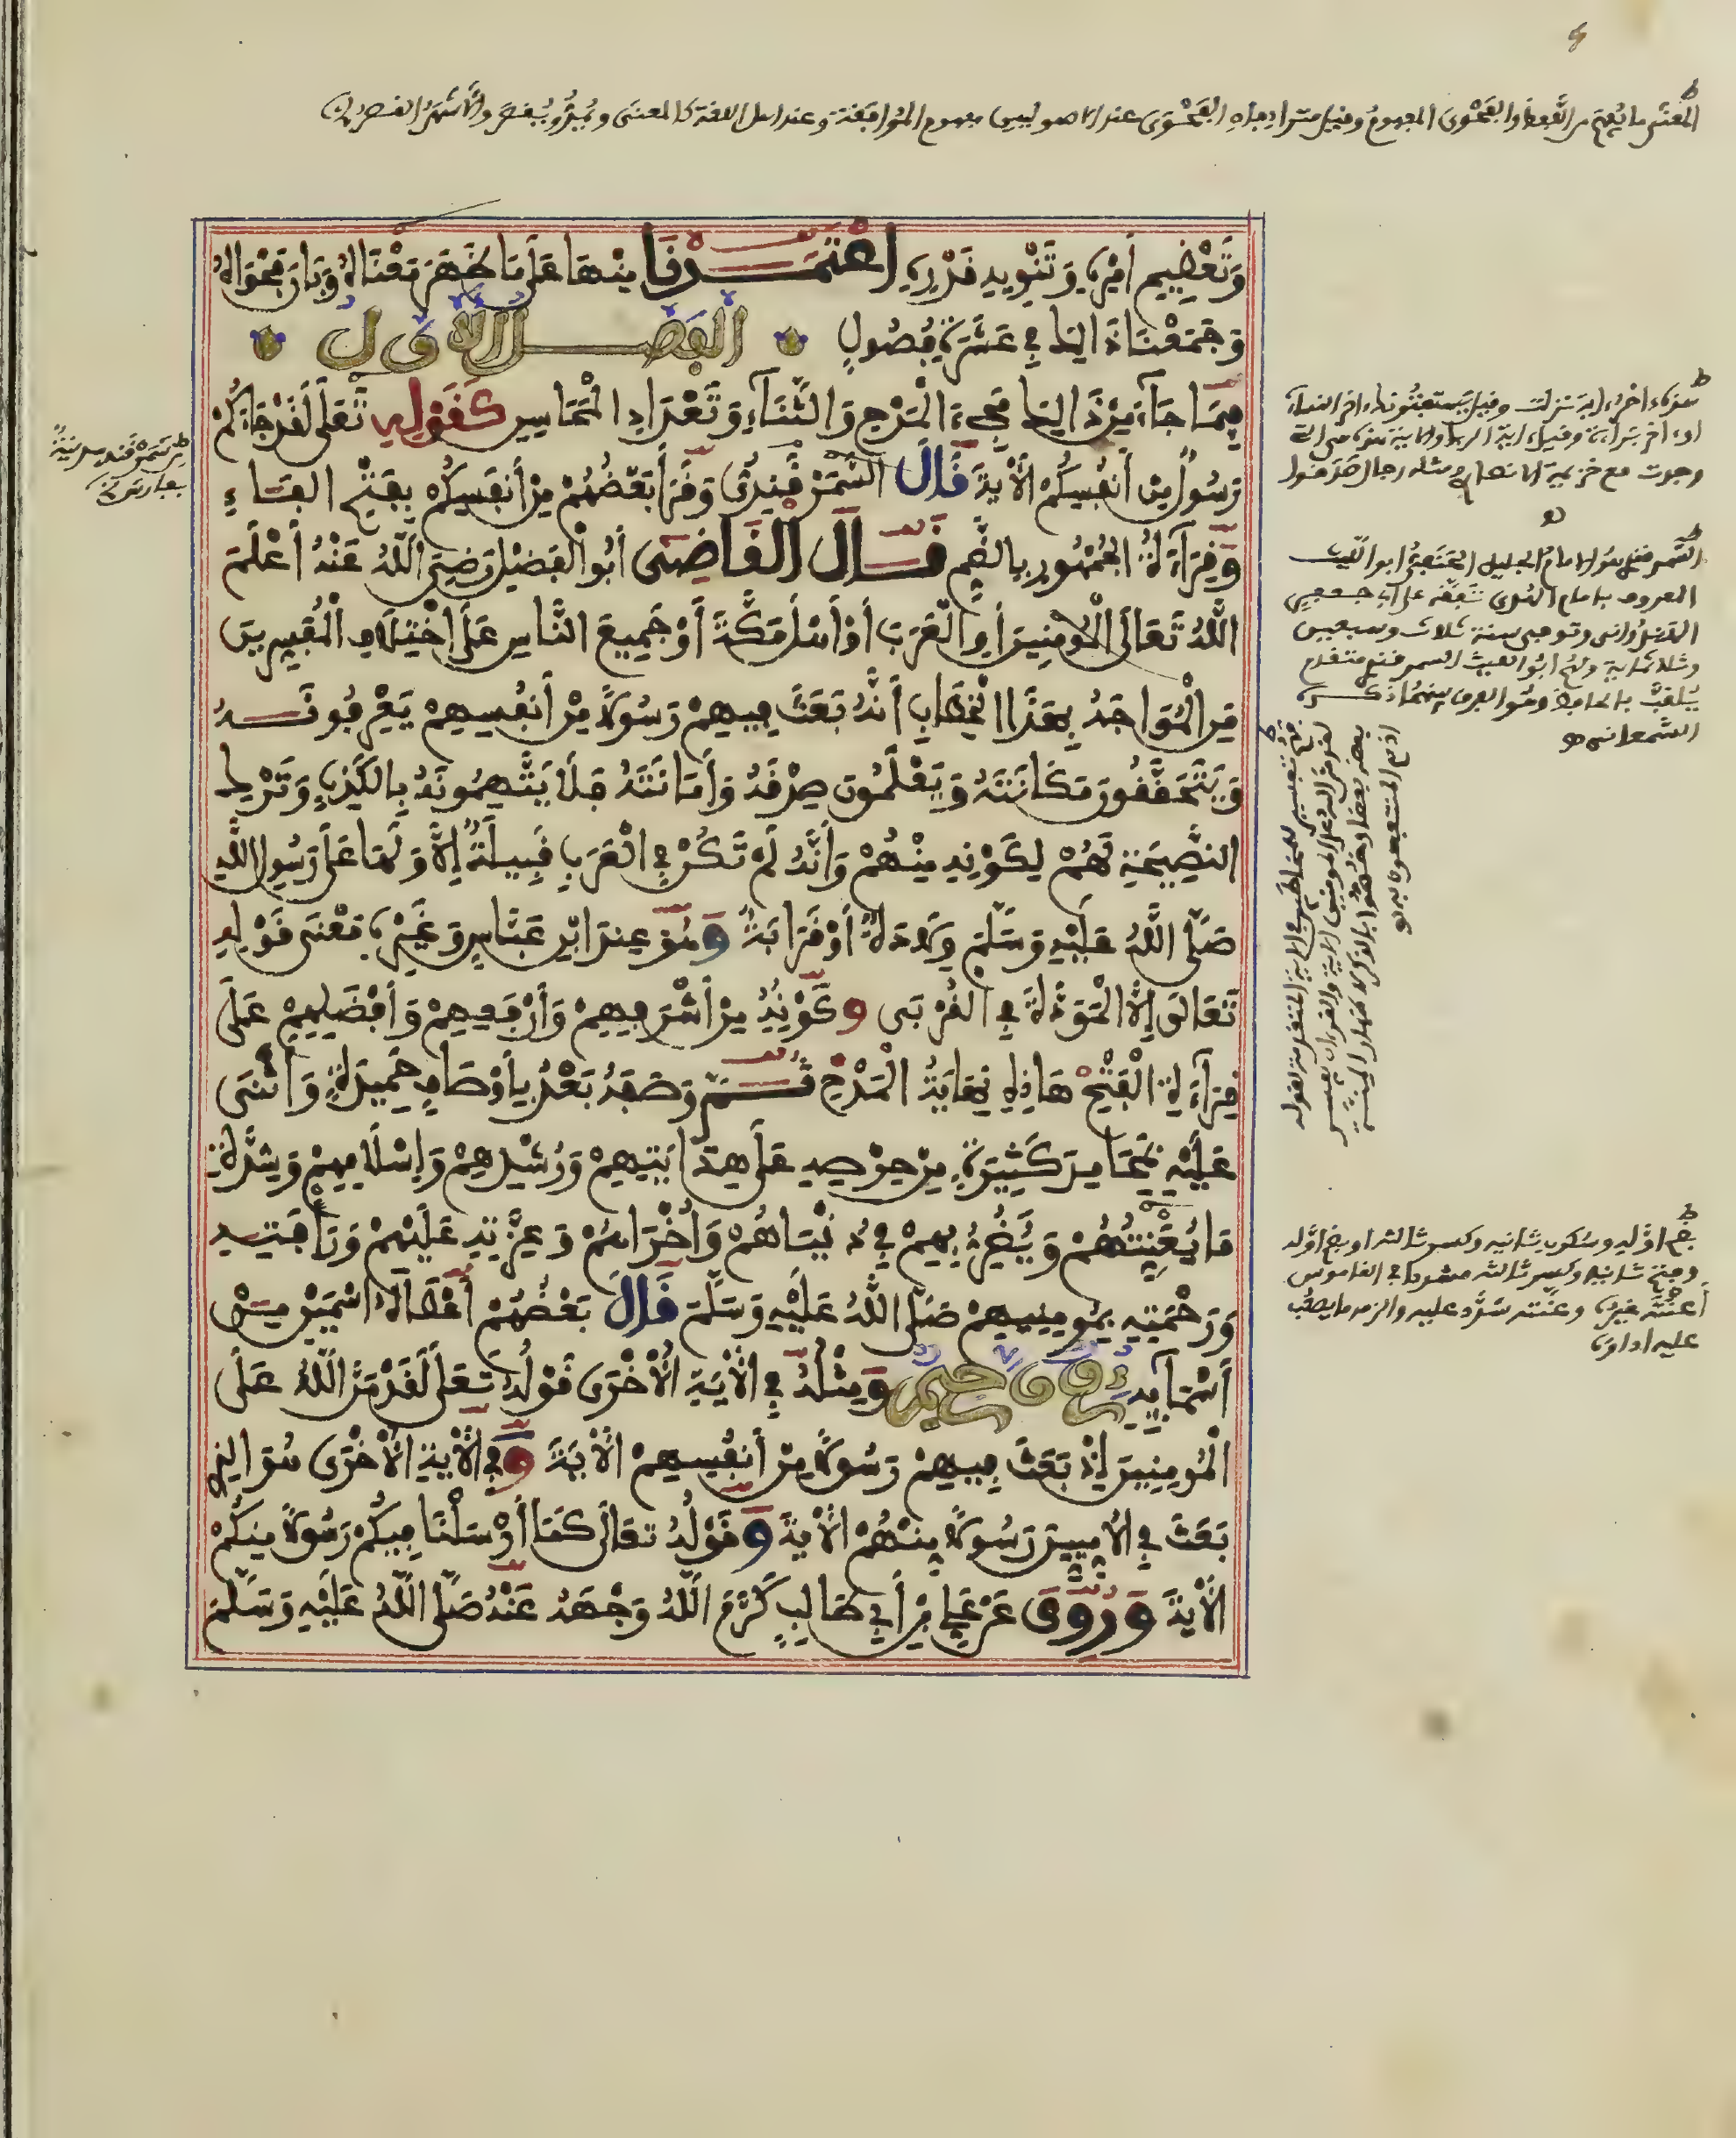 المعنى ما يفهم من اللفظ والفحوى المفهوم وقيل مترادفان الفحوى عند الاصوليين مفهوم الموافقة وعند اهل اللغة كالمعنى ويمد ويقصر والاشهر القصر
وَتَعْظِيمِ أَمْرِهِ وَتَنْوِيهِ قَدْرِهِ اعْتَمَدْنَا مِنْهَا عَلَى مَا ظَهَرَ مَعْنَاهُ وَبَانَ فَحْوَاهُ
وَجَمَعْنَا ذَالِكَ فِي عَشَرَةِ فُصُولٍ الفصل الاول
فِيمَا جَاءَ مِنْ ذَالِكَ مَجِيءَ الْمَدْحِ وَالثَّنَاءِ وَتَعْدَادِ الْمَحَاسِنِ كَقَوْلِهِ تَعَلَى لَقَدْ جَاءَكُمْ
رَسُولٌ مِنْ أَنْفُسِكُمْ الْآيَةَ قَالَ السَّمَرْقَنْدِيُّ وَقَرَأَ بَعْضُهُمْ مِنْ أَنْفَسِكُمْ بِفَتْحِ الْفَاءِ
وَقِرَاءَةُ الْجُمْهُورِ بِالضَّمِّ قَالَ الْقَاضِي أَبُو الْفَضْلِ رَضِيَ اللَّهُ عَنْهُ أَعْلَمَ
اللَّهُ تَعَالَى الْمُؤْمِنِينَ أَوِ الْعَرَبَ أَوْ أَهْلَ مَكَّةَ أَوْ جَمِيعَ النَّاسِ عَلَى اخْتِلَافِ الْمُفَسِّرِينَ
مَنِ الْمُوَاجَهُ بِهَذَا الْخِطَابِ أَنَّهُ بَعَثَ فِيهِمْ رَسُولًا مِنْ أَنْفُسِهِمْ يَعْرِفُونَهُ
وَيَتَحَقَّقُونَ مَكَانَتَهُ وَيَعْلَمُونَ صِدْقَهُ وَأَمَانَتَهُ فَلَا يَتَّهِمُونَهُ بِالْكَذِبِ وَتَرْكِ
النَّصِيحَةِ لَهُمْ لِكَوْنِهِ مِنْهُمْ وَأَنَّهُ لَمْ تَكُنْ فِي الْعَرَبِ قَبِيلَةٌ إِلَّا وَلَهَا عَلَى رَسُولِ اللَّهِ
صَلَّى اللَّهُ عَلَيْهِ وَسَلَّمَ وِلَادَةٌ أَوْ قَرَابَةٌ وَهُوَ عِنْدَ ابْنِ عَبَّاسٍ وَغَيْرِهِ مَعْنَى قَوْلِهِ
تَعَالَى إِلَّا الْمَوَدَّةَ فِي الْقُرْبَى وَكَوْنِهِ مِنْ أَشْرَفِهِمْ وَأَرْفَعِهِمْ وَأَفْضَلِهِمْ عَلَى
قِرَاءَةِ الْفَتْحِ هَاذِهِ نِهَايَةُ الْمَدْحِ ثُمَّ وَصَفَهُ بَعْدُ بِأَوْصَافٍ حَمِيدَةٍ وَأَثْنَى
عَلَيْهِ بِمَحَامِدَ كَثِيرَةٍ مِنْ حِرْصِهِ عَلَى هِدَايَتِهِمْ وَرُشْدِهِمْ وَإِسْلَامِهِمْ وَشِدَّةِ
مَا يُعْنِتُهُمْ وَيَضُرُّ بِهِمْ فِي دُنْيَاهُمْ وَأُخْرَاهُمْ وَعِزَّتِهِ عَلَيْهِمْ وَرَأْفَتِهِ
وَرَحْمَتِهِ بِمُؤْمِنِيهِمْ صَلَّى اللَّهُ عَلَيْهِ وَسَلَّمَ قَالَ بَعْضُهُمْ أَعْطَاهُ اسْمَيْنِ مِنْ
أَسْمَائِهِ رءوف رحيم وَمِثْلُهُ فِي الْآيَةِ الْأُخْرَى قَوْلُهُ تَعَلَى لَقَدْ مَنَّ اللَّهُ عَلَى
الْمُومِنِينَ إِذْ بَعَثَ فِيهِمْ رَسُولًا مِنْ أَنْفُسِهِمْ الْآيَةَ وَفِي الْآيَةِ الْأُخْرَى هُوَ الَّذِي
بَعَثَ فِي الْأُمِّيِّينَ رَسُولًا مِنْهُمْ الْآيَةَ وَقَوْلُهُ تَعَالَى كَمَا أَرْسَلْنَا فِيكُمْ رَسُولًا مِنْكُمْ
الْآيَةَ وَرُوِيَ عَنْ عَلِيِّ بْنِ أَبِي طَالِبٍ كَرَّمَ اللَّهُ وَجْهَهُ عَنْهُ صَلَّى اللَّهُ عَلَيْهِ وَسَلَّمَ
هذه اخر ءاية نزلت وقيل يستفتونك اخر النساء
وجدت مع خزيمة الانصاري مثله رجال صدقوا
السمرقندي هو الامام الجليل الحنفي ابو الليث
المعروف بامام الهدى تفقه على ابي جعفر
الهندواني وتوفي سنة ثلاث وسبعين
وثلاثماية ولهم ابو الليث السمرقندي متقدم
يلقب بالحافظ وهو الفرق بينهما ذكره
السمعاني
بضم اوله وسكون ثانيه وكسر ثالثه او بضم اوله
وفتح ثانيه وكسر ثالثه مشددا في القاموس
أعنته غيره وعنته شدد عليه والزمه ما يصعب
عليه اداؤه